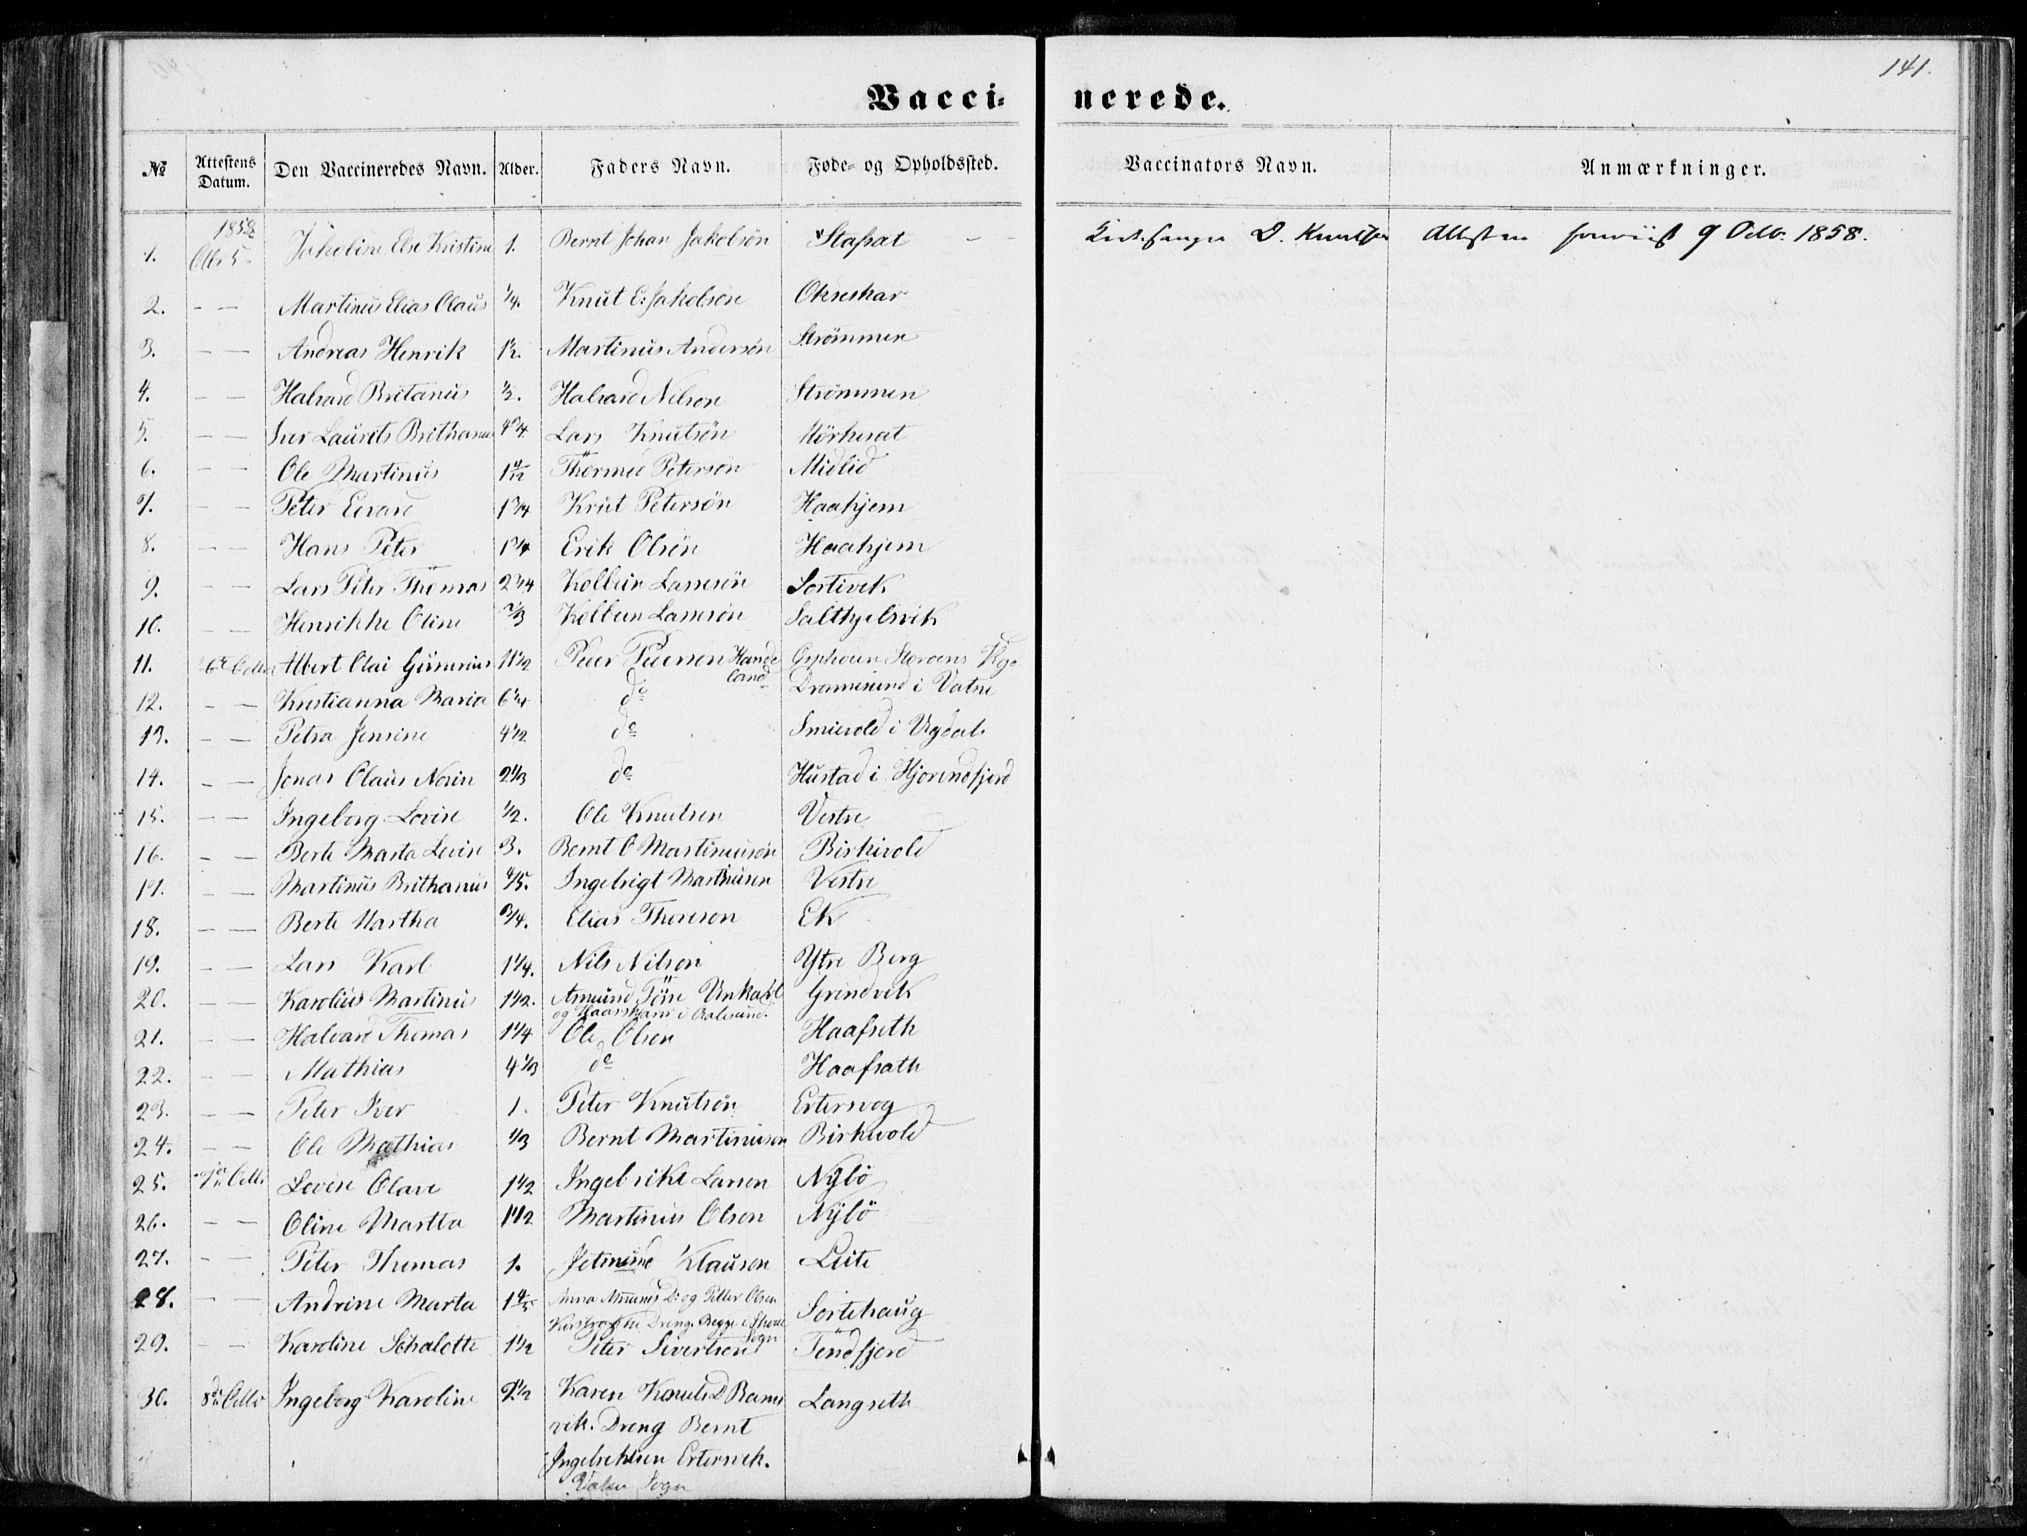 141.
Vacci= nerede.
№ Attestens Datum. Den Vaccineredes Navn. Alder. Faders Navn. Føde= og Opholdssted. Vaccinators Navn. Anmærkninger.
1858
1. Octbr 5 Jakoline Else Kristine 1. Bernt Johan Jakobsøn Stafsæt — — D. Knutsen 9 Octb. 1858.
2. — — Martinus Elias Olaus 1/4. Knut E. Jakobsøn Okseskar
3. — — Andreas Henrik 1½. Martinus Andersøn Strømmen
4. — — Halvard Britanus ½. Halvard Nilson Strømmen
5. — — Iver Laurits Brithanus 4 3/4 Lars Knutsøn Mørkesæt
6. — — Ole Martinus Thormod Petersøn Midlid
7. — — Peter Edvard 1 3/4 Knut Petersøn Haahjem
8. — — Hans Peter 1 3/4 Erik Olsøn Haahjem
9. — — Lars Peter Thomas 2 3/4 Kolbein Lassesøn Sortevik
10. — — Henrikke Oline 2/3 Kolbein Lassesøn Salthjelsvik
11. 6te Octbr Albert Olai Gümerius 11½ Peer Peersen Hande
land
12. — — Kristianna Maria 6 1/4 do Dramesund i Vatne
13. — — Petra Jensine 4½ do Smisvold i Ugdal
14. — — Jonas Olaus Norin 2 1/3 do Hustad i Hjørendfjord
15. — — Ingeborg Lovise ½. Ole Knutsen Vestre
16. — — Berte Marta Lovise 3. Bernt O Martinusøn Birkevold
17. — — Martinus Brithanus 4/5. Ingebrigt Martinusen Vestre
18. — — Berte Martha 3/4. Elias Thoreson Ek
19. — — Lars Karl 1 1/4. Nils Nilson Ytre Berg
20. — — Karolius Martinus 1½. Amund Tøre Unkarl Grindvik
og i Aalesund.
21. — — Halvard Thomas 1 1/4 Ole Olsen Haafseth
22. — — Mathias 4 1/3 do Haafsæth
23. — — Peter Iver 1. Peter Knutsøn Ertesvog
24. — — Ole Mathias 1/3 Bernt Martinusen Birkevold
25. 7de Octbr. Lovise Olave 1½ Ingebrikt Larsen Nybø
26. — — Oline Martha 1½ Martinus Olsen Nybø
27. — — Peter Thomas 1. Jetmund Klausen Leite
28. — — Andrine Marta 1 4/5 Anna D: og Petter Olsen Sortehaug
Dreng. Begge i Skoue
Sogn
29. — — Karoline Schalotte 1½ Peter Sivertsen Tendfjord
30. 8de Octbr Ingeborg Karoline 2½ Karen Knuts D Rams Langseth
vik. Dreng Bernt
Ingebriktsen Ertesvek.
Sogn